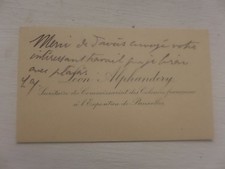 Merci de m'avoir envoyé votre
intéressant travail que je lirai
avec plaisir
Léon Alphandery
Secrétaire du Commissariat des Colonies françaises
à l'Exposition de Bruxelles